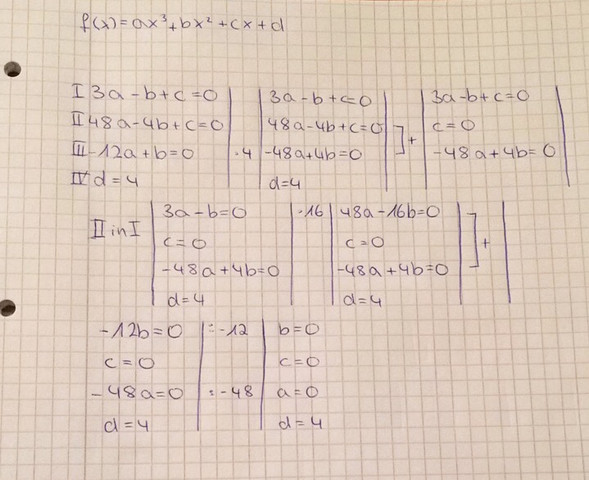 f(x)=ax³+bx²+cx+d
I 3a-b+c=0 | | 3a-b+c=0 | | 3a-b+c=0 |
II 48a-4b+c=0 | | 48a-4b+c=0 ] | c=0 |
III -12a+b=0 | ·4 | -48a+4b=0 ] + | -48a+4b=0 |
IV d=4 | | d=4 | |
II in I | 3a-b=0 | ·16 | 48a-16b=0 | ] |
| c=0 | | c=0 | + |
| -48a+4b=0 | | -48a+4b=0 | ] |
| d=4 | | d=4 | |
-12b=0 | :-12 | b=0
c=0 | | c=0
-48a=0 | :-48 | a=0
d=4 | | d=4